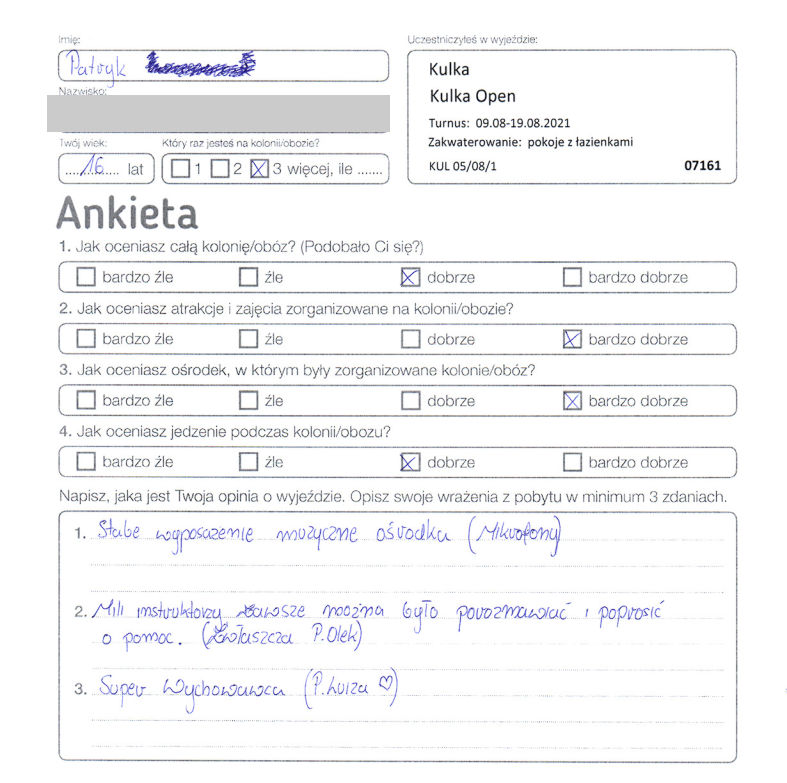 Imię:
Patryk
Nazwisko:
Twój wiek:
16 lat
Który raz jesteś na kolonii/obozie?
1 2 3 więcej, ile .......
Uczestniczyłeś w wyjeździe:
Kulka
Kulka Open
Turnus: 09.08-19.08.2021
Zakwaterowanie: pokoje z łazienkami
KUL 05/08/1 07161
Ankieta
1. Jak oceniasz całą kolonię/obóz? (Podobało Ci się?)
bardzo źle źle dobrze bardzo dobrze
2. Jak oceniasz atrakcje i zajęcia zorganizowane na kolonii/obozie?
bardzo źle źle dobrze bardzo dobrze
3. Jak oceniasz ośrodek, w którym były zorganizowane kolonie/obóz?
bardzo źle źle dobrze bardzo dobrze
4. Jak oceniasz jedzenie podczas kolonii/obozu?
bardzo źle źle dobrze bardzo dobrze
Napisz, jaka jest Twoja opinia o wyjeździe. Opisz swoje wrażenia z pobytu w minimum 3 zdaniach.
1. Słabe wyposażenie muzyczne ośrodka (Mikrofony)
2. Mili instruktorzy zawsze można było porozmawiać i poprosić
o pomoc. (Zwłaszcza P. Olek)
3. Super Wychowawca (P. Luiza ♡)